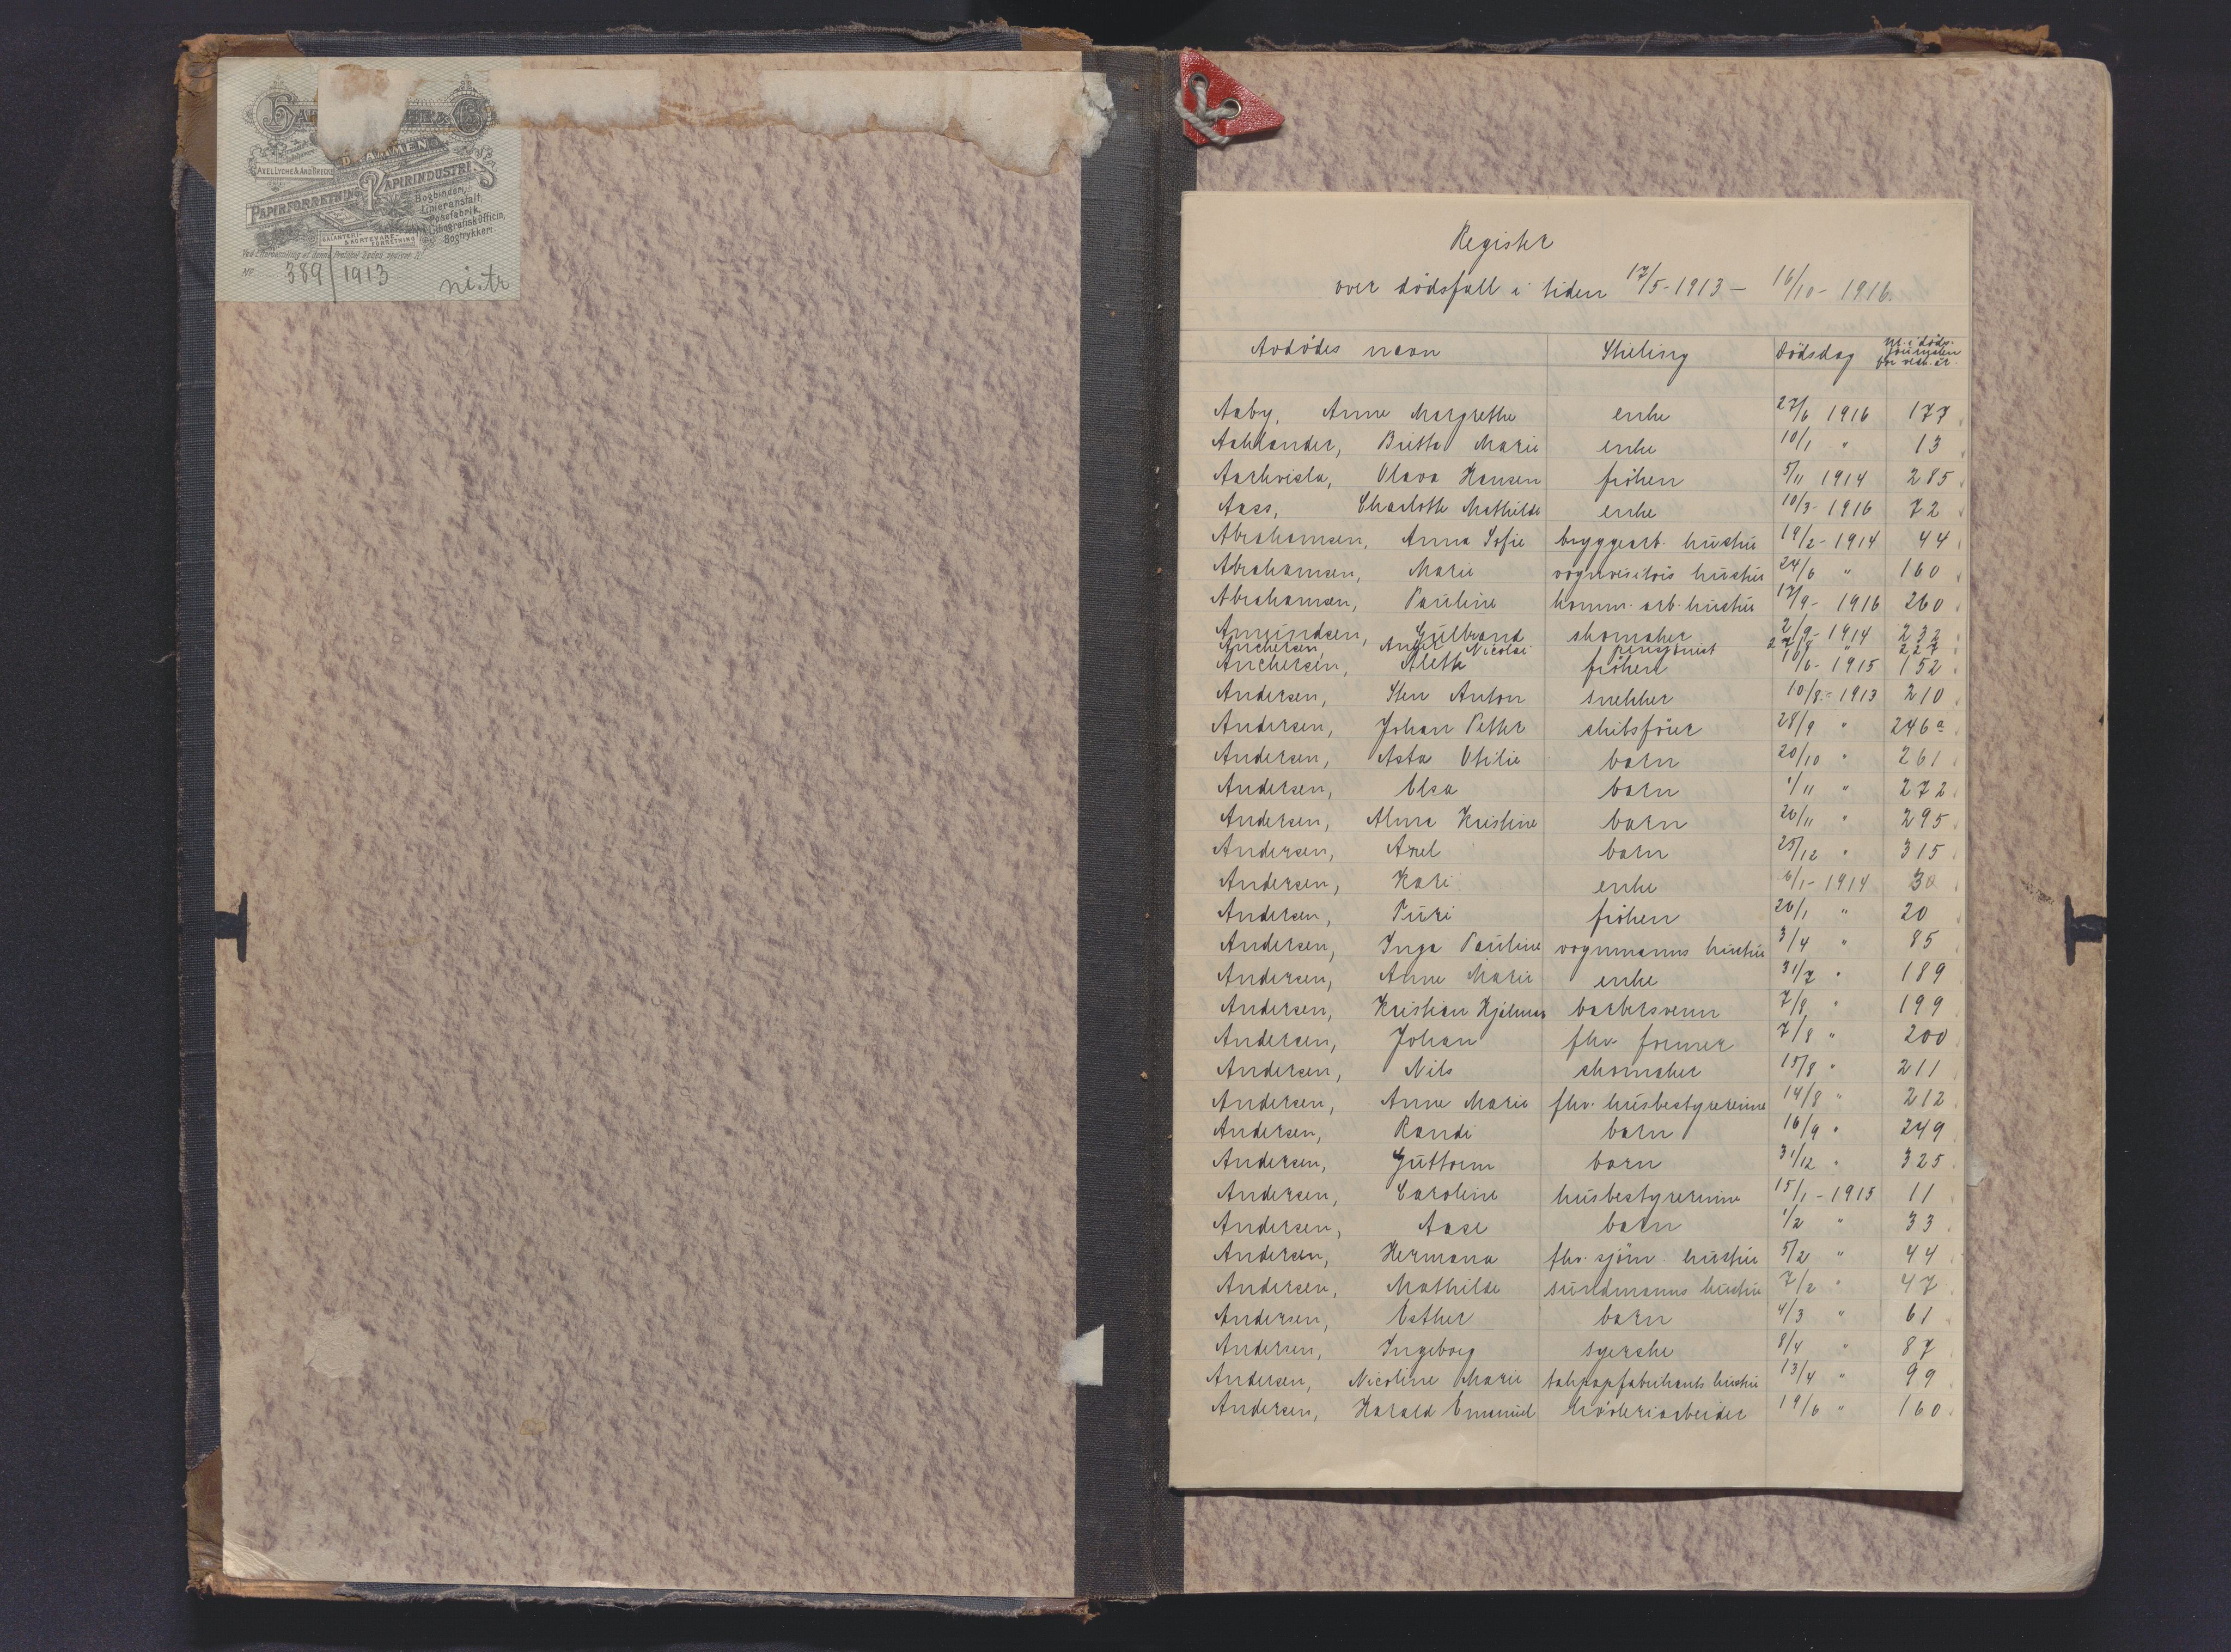 DRAMMEN
AXEL LYCHE & AND. BRECKE
PAPIRFORRETNING PAPIRINDUSTRI
Bogbinderi,
Linieranstalt,
Posefabrik,
Lithografisk Officin,
Bogtrykkeri
GALANTERI-
& KORTEVARE-
FORRETNING
No 389/1913 ni.tr
Register
over dödsfall i tiden 17/5-1913 - 16/10-1916.
Avdödes navn Stilling Dödsdag Nr. i döds-journalen for vedk. år.
Aaby, Anne Margrethe enke 27/6 1916 177
Aahlander, Britta Marie enke 10/1 " 13
Aarkvisla, Olava Hansen fröken 5/11 1914 285
Aass, Charlotte Mathilde enke 10/3- 1916 72
Abrahamsen, Anna Sofie bryggearb. hustru 19/2- 1914 44
Abrahamsen, Marie vognvisitörs hustru 24/6 " 160
Abrahamsen, Pauline komm. arb. hustru 17/9- 1916 260
Amundsen, Gulbrand skomaker 2/9- 1914 232
Anchersen, Anker Nicolai pensionist 27/8 " 227
Anchersen, Aleth fröken 10/6- 1915 152
Andersen, Sten Anton snekker 10/8- 1913 210
Andersen, Johan Petter skibsförer 28/9 " 246a
Andersen, Asta Otilie barn 20/10 " 261
Andersen, Elsa barn 1/11 " 272
Andersen, Alma Kristine barn 20/11 " 295
Andersen, Axel barn 25/12 " 315
Andersen, Kari enke 6/1- 1914 30
Andersen, Turi fröken 20/1 " 20
Andersen, Inga Pauline vognmanns hustru 3/4 " 85
Andersen, Anne Marie enke 31/7 " 189
Andersen, Kristian Hjalmar barbersvenn 7/8 " 199
Andersen, Johan fhv. former 7/8 " 200
Andersen, Nils skomaker 15/8 " 211
Andersen, Anne Marie fhv. husbestyrerinne 14/8 " 212
Andersen, Randi barn 16/9 " 249
Andersen, Guttorm barn 31/12 " 325
Andersen, Caroline husbestyrerinne 15/1- 1915 11
Andersen, Aase barn 1/2 " 33
Andersen, Hermana fhv. sjöm. hustru 5/2 " 44
Andersen, Mathilde sundmanns hustru 7/2 " 47
Andersen, Esther barn 4/3 " 61
Andersen, Ingeborg syerske 8/4 " 87
Andersen, Nicoline Marie takpapfabrikants hustru 13/4 " 99
Andersen, Harald Emanuel hövleriarbeider 19/6 " 160